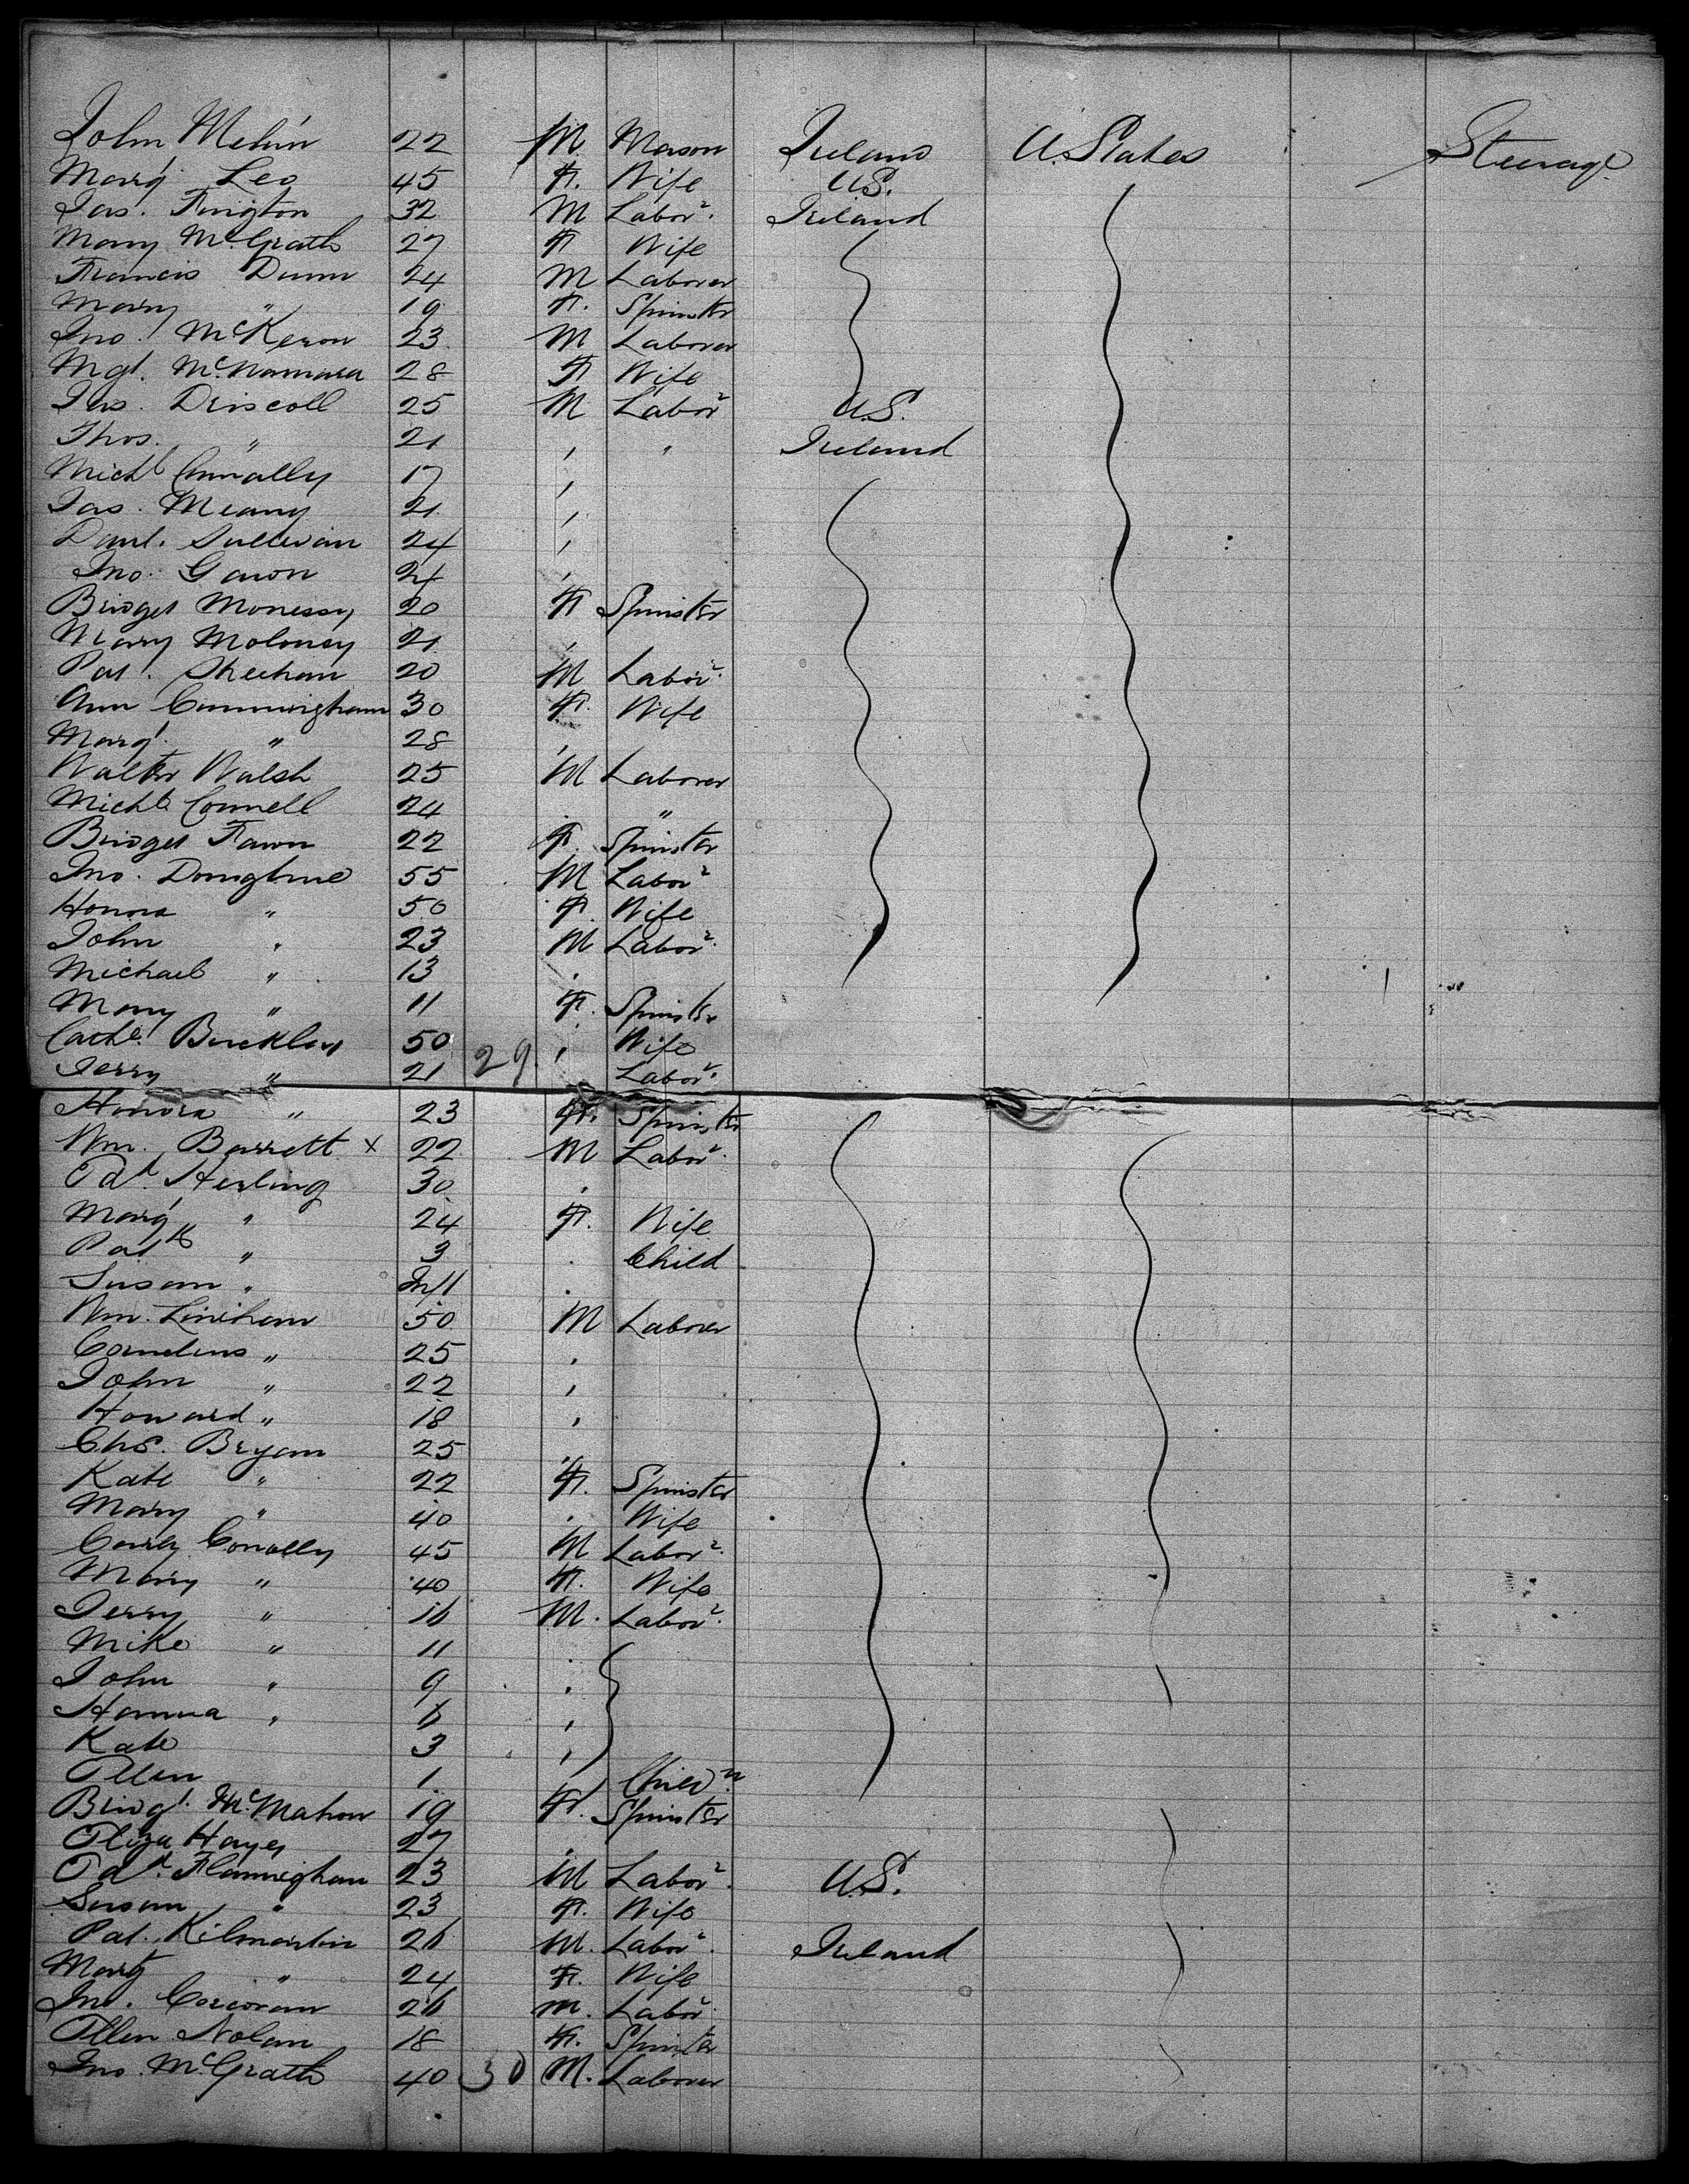 John Mehin 22 M Mason Ireland U. States Steerage
Marg' Leo 45 F. Wife U.S.
Jas. Fington 32 M Labor. Ireland
Mary McGrath 27 F Wife
Francis Dunn 24 M Laborer
Mary " 19 F. Spinster
Jno. McKeron 23 M Laborer
Mgt. McNamara 28 F Wife
Jas. Driscoll 25 M Labor U.S.
Thos. " 21 " " Ireland
Michl Connally 17 "
Jas. Meany 21 "
Danl. Sullivan 24 "
Jno. Garon 24 "
Bridget Monessy 20 F Spinster
Mary Moloney 21 "
Pat. Sheehan 20 M Labor.
Ann Cunningham 30 F. Wife
Margt. " 28 "
Walter Walsh 25 M Laborer
Michl. Connell 24 "
Bridget Fawn 22 F. Spinster
Jno. Donoghue 55 M Labor
Honora " 50 F. Wife
John " 23 M Labor.
Michael " 13 "
Mary " 11 F. Spinster
Cathe. Buckley 50 " Wife
Jerry " 21 29 Labor.
Honora " 23 F. Spinster
Wm. Barrett x 22 M Labor.
Edd. Herling 30 "
Marg' " 24 F. Wife
Patk " 3 " Child
Susan " Inft "
Wm. Linehan 50 M Laborer
Cornelius " 25 "
John " 22 "
Howard " 18 "
Chs. Bryan 25 "
Kate " 22 F. Spinster
Mary " 40 " Wife
Conolly 45 M Labor.
Mary " 40 F. Wife
Jerry " 16 M. Labor.
Mike " 11 "
John " 9 "
Hanna " 6 "
Kate 3 "
Ellen 1 Childn
Bridgt. McMahon 19 F. Spinster
Eliza Hayes 27 "
Edd. Flannighan 23 M Labor. U.S.
Susan " 23 F. Wife
Pat. Kilmartin 26 M. Labor. Ireland
Margt " 24 F. Wife
Jno. Corcoran 26 M. Labor.
Ellen Nolan 18 F. Spinster
Jno. McGrath 40 30 M. Laborer